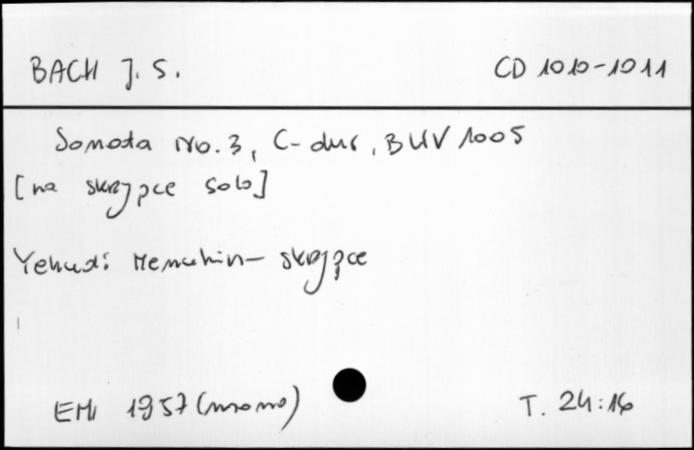 BACH J. S.
CD 1010-1011
Sonata No. 3, C-dur, BWV 1005
[na skrzypce solo]
Yehudi Menuhin - skrzypce
EMI 1957 (mono)
T. 24:16